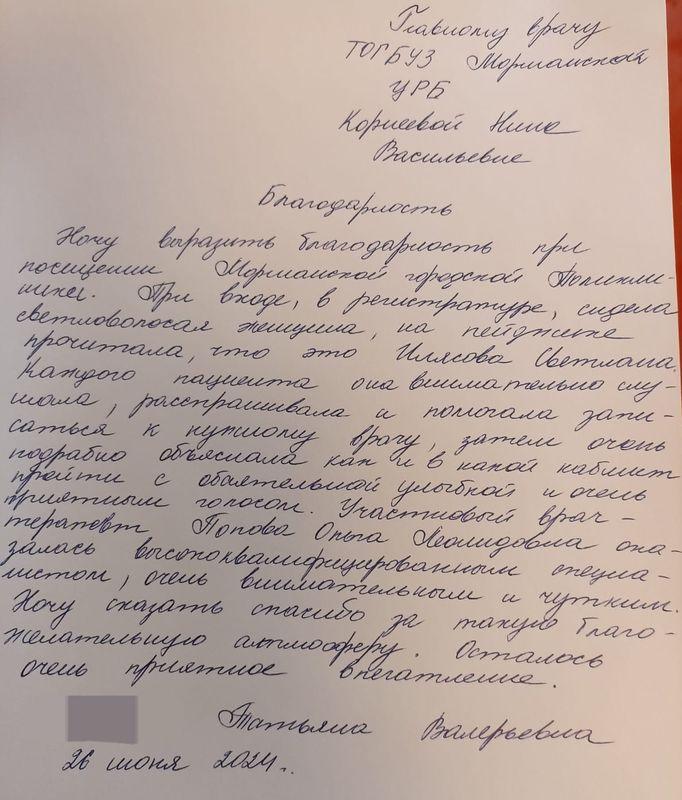 Главному врачу
ТОГБУЗ Моршанской
ЦРБ
Корнеевой Нине
Васильевне
Благодарность
Хочу выразить благодарность при
посещении Моршанской городской Поликли-
ники. При входе, в регистратуре, сидела
светловолосая женщина, на пейджике
прочитала, что это Илясова Светлана.
Каждого пациента она внимательно слу-
шала, расспрашивала и помогала запи-
саться к нужному врачу, затем очень
подрабно объясняла как и в какой кабинет
пройти с обаятельной улыбкой и очень
приятным голосом. Участковый врач-
терапевт Попова Ольга Леонидовна ока-
залась высококвалифицированным специа-
листом, очень внимательным и чутким.
Хочу сказать спасибо за такую благо-
желательную атмосферу. Осталось
очень приятное впечатление.
Татьяна Валерьевна
26 июня 2024г.